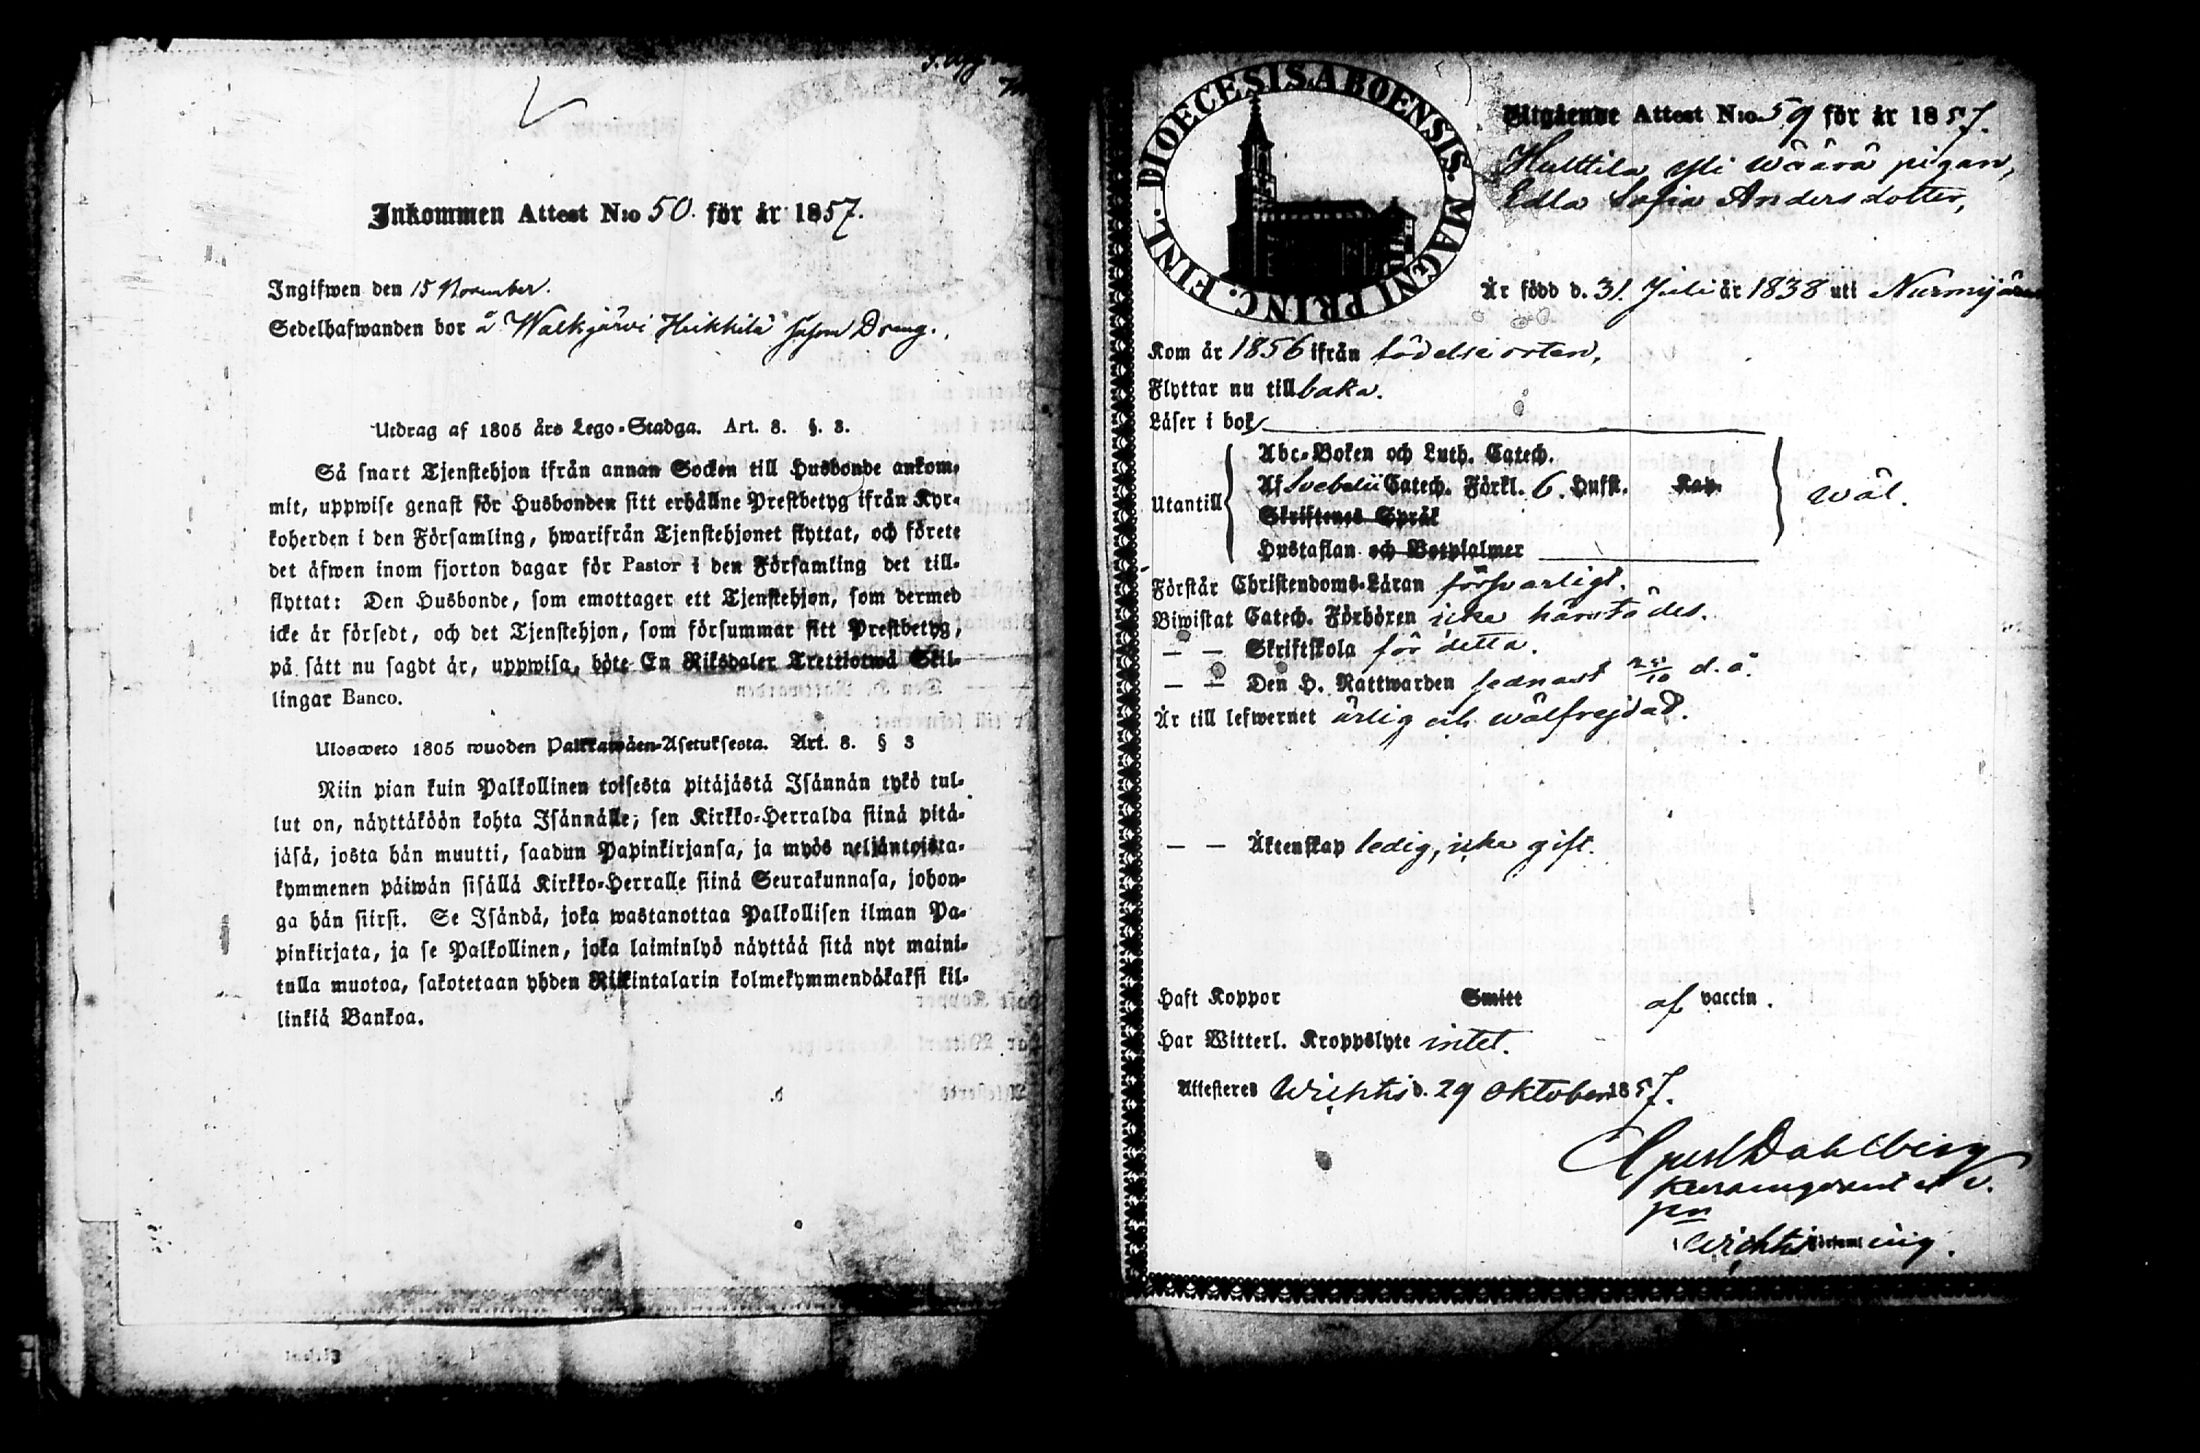 Inkommen Attest N:o 50. för år 1857.
Ingifwen den 15 November.
Sedelhafwanden bor å Walkjärvi Heikkilä såsom Dräng.
Utdrag af 1805 års Lego-Stadga. Art. 8. §. 3.
Så snart Tjenstehjon ifrån annan Socken till Husbonde ankom-
mit, uppwise genast för Husbonden sitt erhållne Prestbetyg ifrån Kyr-
koherden i den Församling, hwarifrån Tjenstehjonet flyttat, och förete
det äfwen inom fjorton dagar för Pastor i den Församling det till-
flyttat: Den Husbonde, som emottager ett Tjenstehjon, som dermed
icke är försedt, och det Tjenstehjon, som försummar sitt Prestbetyg,
på sätt nu sagdt är, uppwisa, böte En Riksdaler Trettiotwå Skil-
lingar Banco.
Ulosweto 1805 wuoden Palkkawäen-Asetuksesta. Art. 8. § 3
Niin pian kuin Palkollinen toisesta pitäjästä Isännän tykö tul-
lut on, näyttäköön kohta Isännälle; sen Kirkko-Herralda siinä pitä-
jäsä, josta hän muutti, saadun Papinkirjansa, ja myös neljäntoista-
kymmenen päiwän sisällä Kirkko-Herralle siinä Seurakunnasa, johon-
ga hän siirsi. Se Isändä, joka wastanottaa Palkollisen ilman Pa-
pinkirjata, ja se Palkollinen, joka laiminlyö näyttää sitä nyt maini-
tulla muotoa, sakotetaan yhden Riikintalarin kolmekymmendäkaksi kil-
linkiä Bankoa.
DIOECESIS ABOENSIS. MAGNI PRINC. FINL.
Utgående Attest N:o 59 för år 1857.
Hulttila Wäärä pigan,
Edla Sofia Andersdotter,
Är född d. 31. Juli år 1838 uti Nurmijärvi
Kom år 1856 ifrån födelseorten,
Flyttar nu tillbaka.
Läser i bok
Utantill
Abc-Boken och Luth. Catech.
Af Svebelii Catech. Förkl. 6. Hufst. Kap.
Skriftenes Språk
Hustaflan och Botpsalmer
wäl.
Förstår Christendoms-Läran försvarligt.
Biwistat Catech. Förhören icke härstädes.
— — Skriftskola för detta.
— — Den H. Nattwarden sednast 25/10 d. å.
Är till lefwernet ärlig och wälfrejdad.
— — Äktenskap ledig, icke gift.
Haft Koppor Smitt af vaccin.
Har Witterl. Kroppslyte intet.
Attesteras Wichtis d. 29 Oktober 1857.
Dahlberg
Wichtis Församling.